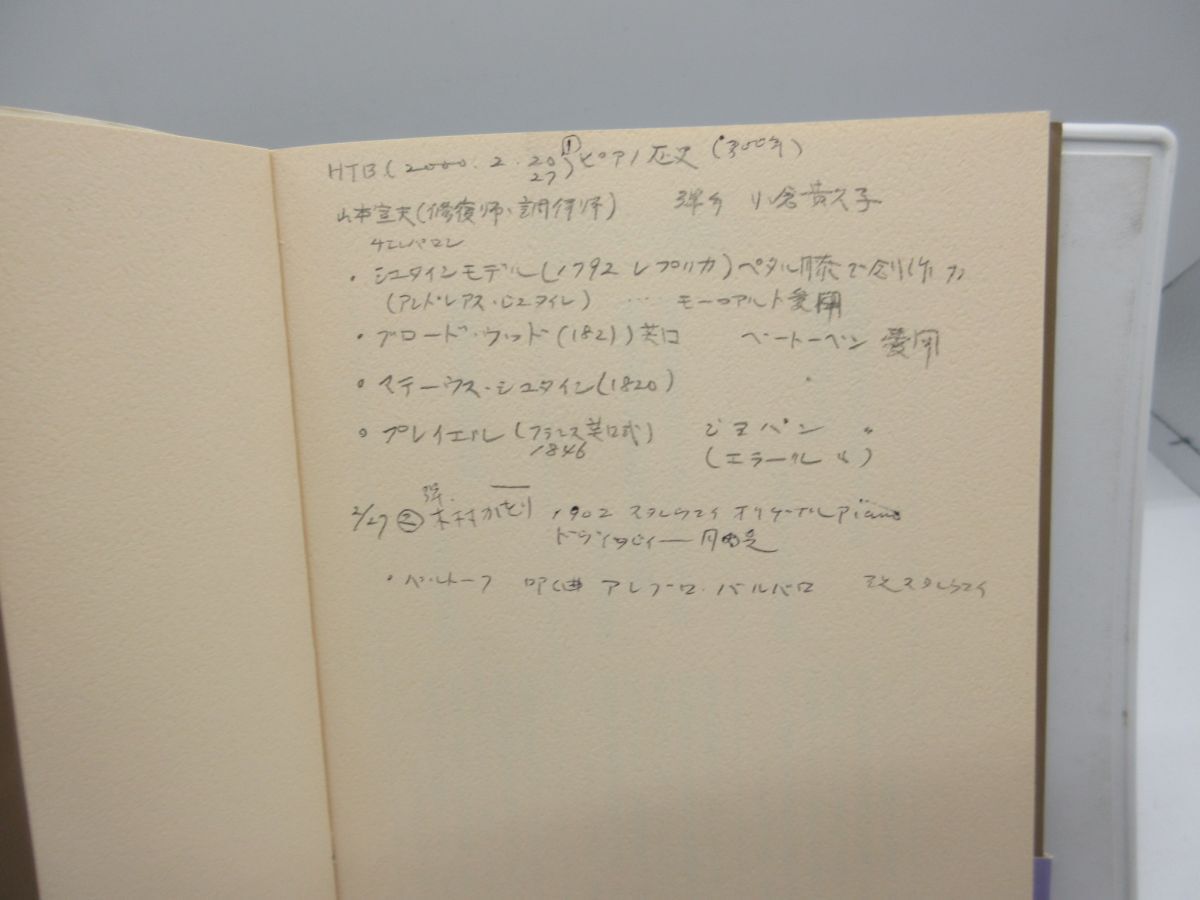 HTB(2000.2.20①)ピアノ歴史(300年)
27
山本宣夫(修復師、調律師) 弾手 小倉貴久子
チエンバロン
・シュタインモデル(1792 レプリカ)ペタル膝で
(アンドレアス・シュタイン) … モーツアルト愛用
・ブロード・ウッド(1821)英国 ベートーベン愛用
・マテーウス・シュタイン(1820)
・プレイエル(フランス英国式) ショパン 〃
1846
(エラール 〃)
弾.
2/27 ② 木村かをり 1902 スタンウェイ オリヂナルPiano
ドヴィッシィー 月の光
・バルトーク アレグロ・バルバロ スタンウェイ